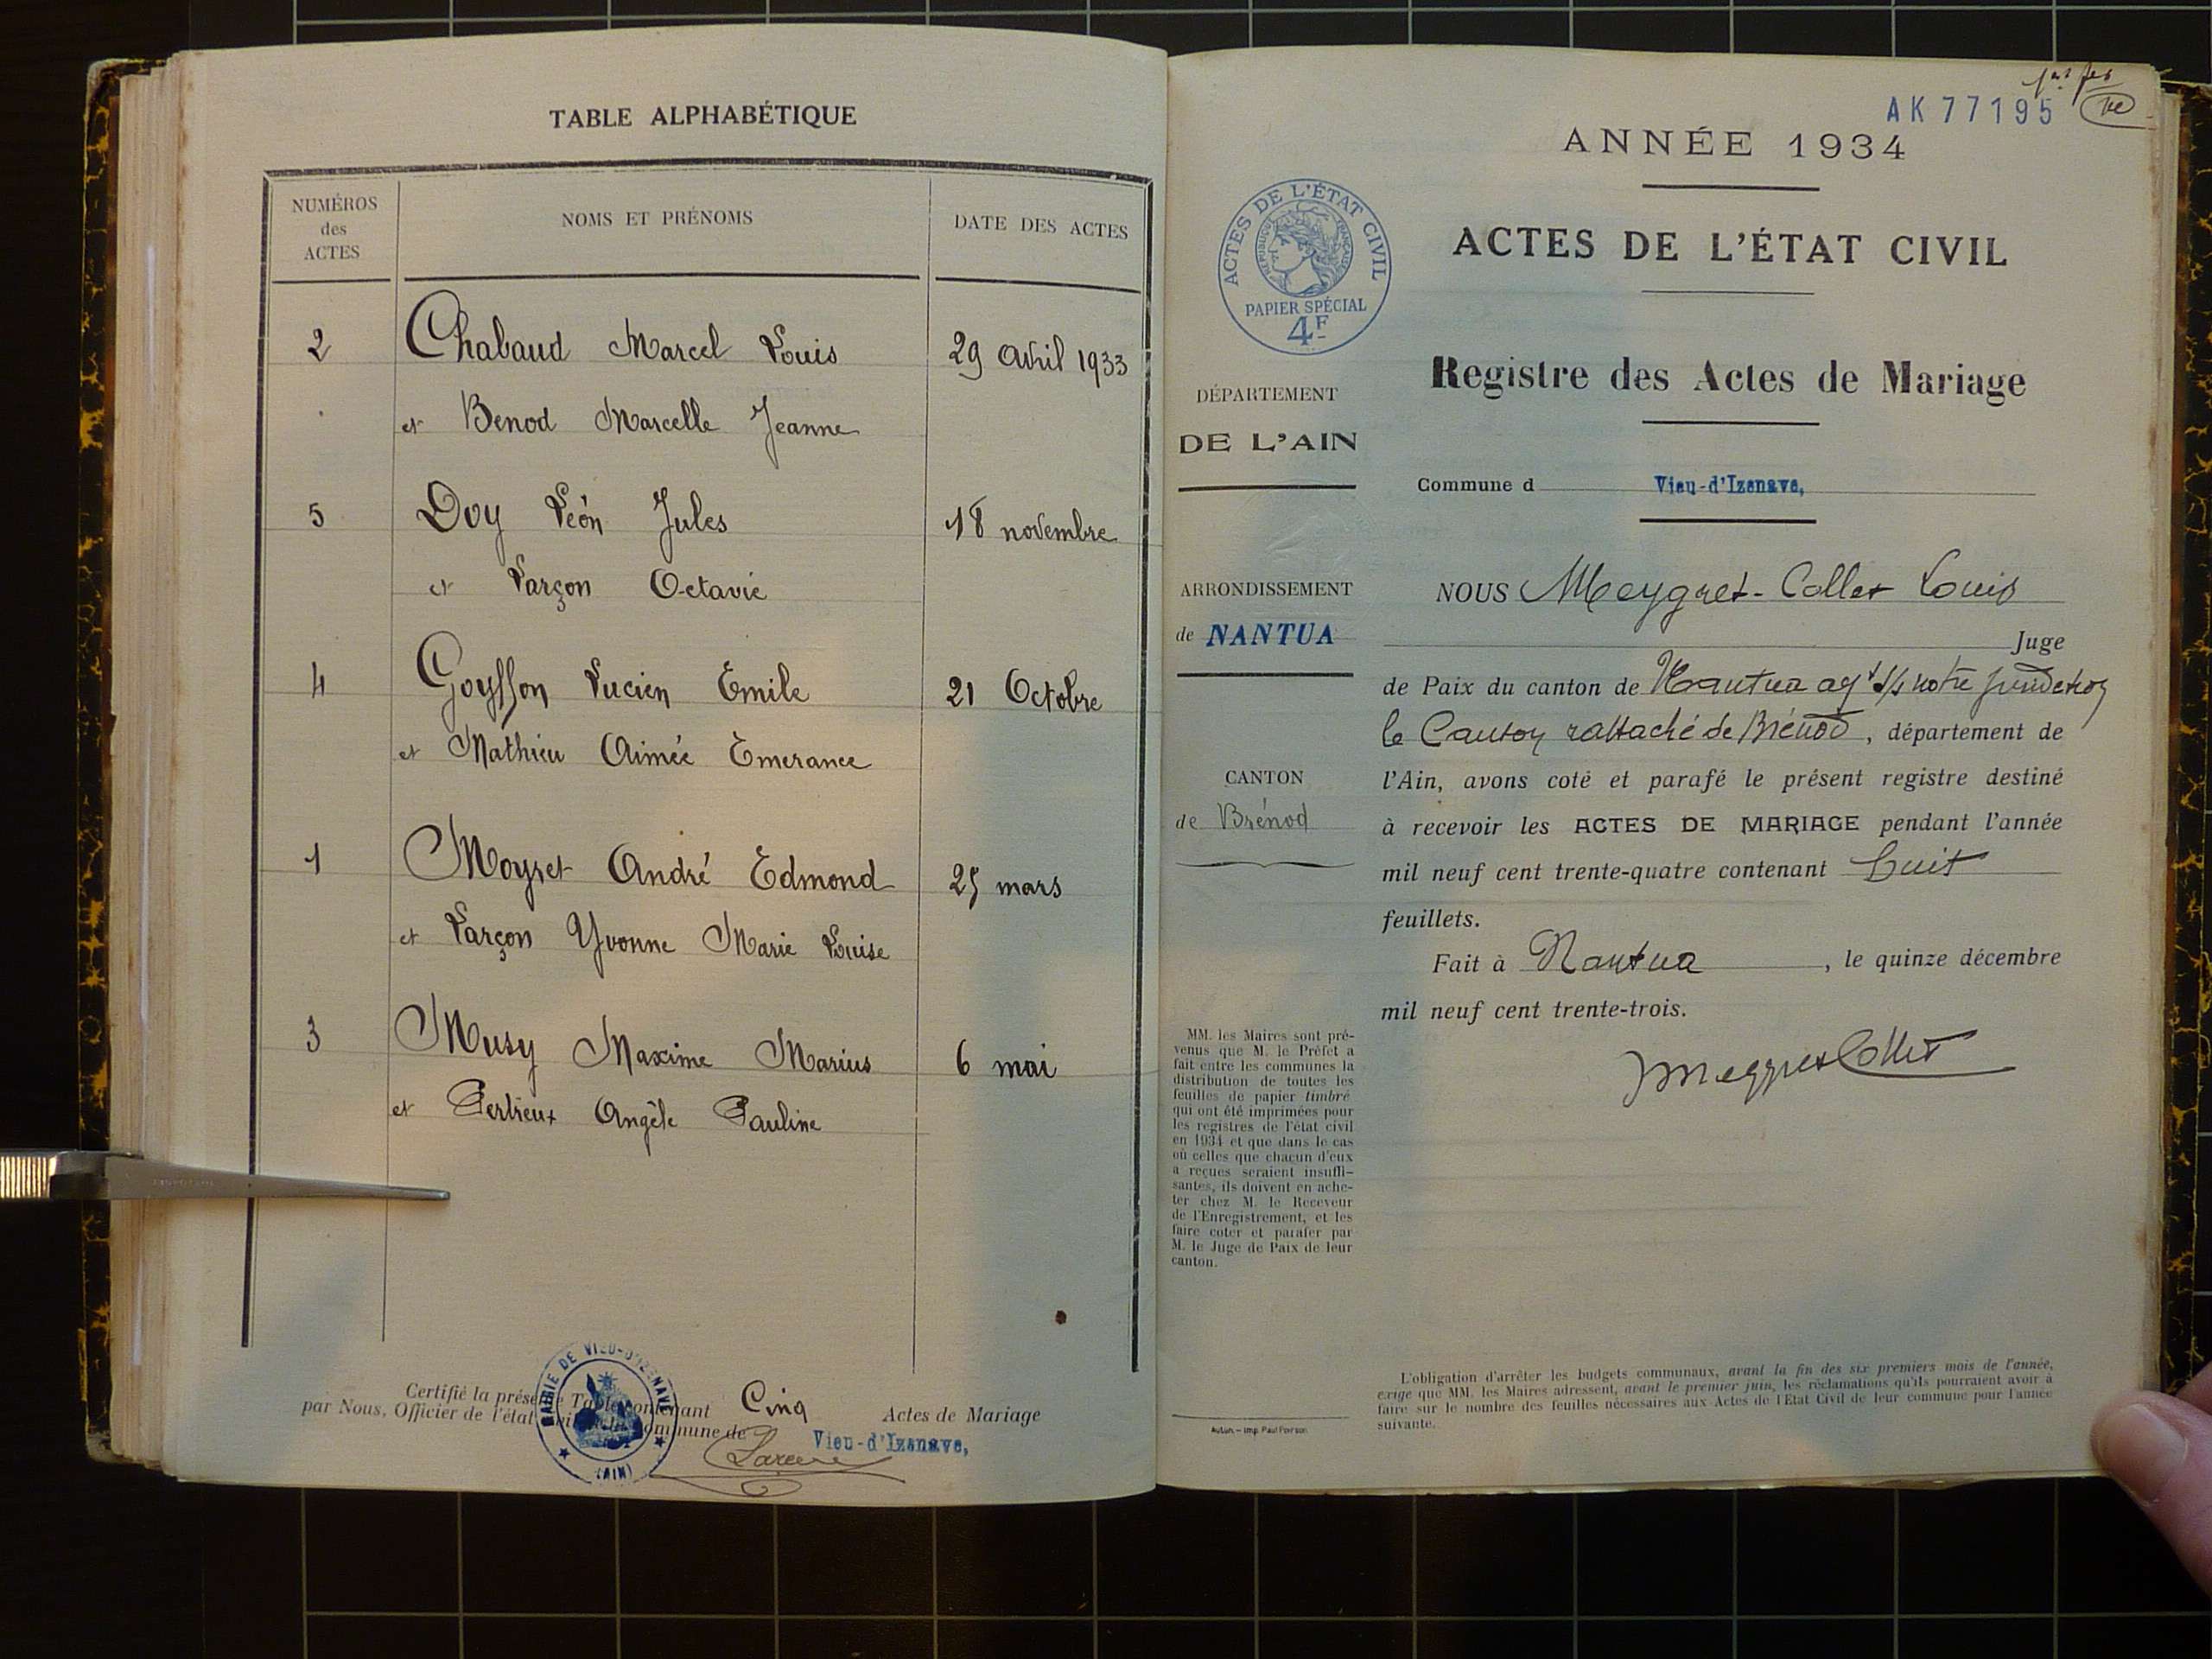 TABLE ALPHABÉTIQUE
NUMÉROS
des
ACTES
NOMS ET PRÉNOMS
DATE DES ACTES
2 Chabaud Marcel Louis 29 avril 1933
et Benod Marcelle Jeanne
5 Doy Léon Jules 18 novembre
et Larçon Octavie
4 Goyffon Lucien Emile 21 Octobre
et Mathieu Aimée Emerance
1 Moyret André Edmond 25 mars
et Larçon Yvonne Marie Louise
3 Musy Maxime Marius 6 mai
et Perlieux Angèle Pauline
Certifié la présente Table contenant Cinq Actes de Mariage
par Nous, Officier de l'état civil de la commune de Vieu-d'Izenave,
MAIRIE DE VIEU-D'IZENAVE
(AIN)
AK 77195
ANNÉE 1934
ACTES DE L'ÉTAT CIVIL
ACTES DE L'ÉTAT CIVIL
RÉPUBLIQUE FRANÇAISE
PAPIER SPÉCIAL
4F
Registre des Actes de Mariage
DÉPARTEMENT
DE L'AIN
Commune d Vieu-d'Izenave,
ARRONDISSEMENT
de NANTUA
CANTON
de Brénod
NOUS Meygret-Collet Louis
Juge
de Paix du canton de Nantua ayt s/s notre
le Canton rattaché de Brénod, département de
l'Ain, avons coté et parafé le présent registre destiné
à recevoir les ACTES DE MARIAGE pendant l'année
mil neuf cent trente-quatre contenant huit
feuillets.
Fait à Nantua, le quinze décembre
mil neuf cent trente-trois.
Meygret Collet
MM. les Maires sont pré-
venus que M. le Préfet a
fait entre les communes la
distribution de toutes les
feuilles de papier timbré
qui ont été imprimées pour
les registres de l'état civil
en 1934 et que dans le cas
où celles que chacun d'eux
a reçues seraient insuffi-
santes, ils doivent en ache-
ter chez M. le Receveur
de l'Enregistrement, et les
faire coter et parafer par
M. le Juge de Paix de leur
canton.
Autun. - Imp. Paul Poirson
L'obligation d'arrêter les budgets communaux, avant la fin des six premiers mois de l'année,
exige que MM. les Maires adressent, avant le premier juin, les réclamations qu'ils pourraient avoir à
faire sur le nombre des feuilles nécessaires aux Actes de l'Etat Civil de leur commune pour l'année
suivante.